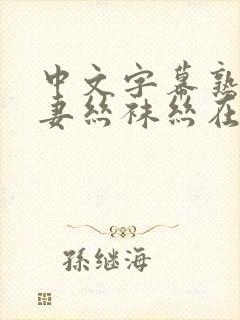 中文字幕熟
妻丝袜丝在
孫继海